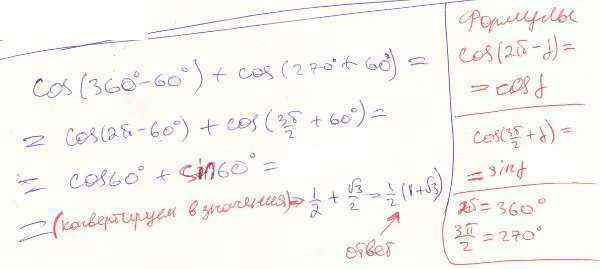 cos(360°-60°) + cos(270°+60°) =
= cos(2π-60°) + cos(3π/2 + 60°) =
= cos60° + sin60° =
= (конвертируем в значения) = 1/2 + √3/2 = 1/2 (1+√3)
ответ
Формулы
cos(2π-γ) =
= cosγ
cos(3π/2 + γ) =
= sinγ
2π = 360°
3π/2 = 270°